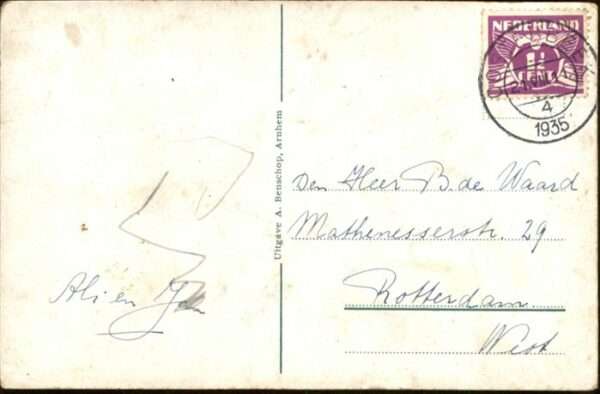 NEDERLAND
1½
4
1935
Uitgave A. Benschop, Arnhem
Den Heer B. de Waard.
Mathenesserstr. 29
Rotterdam.
West
Ali en